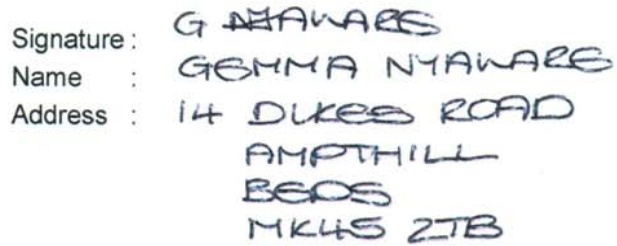 Signature : G NYAWARE
Name : GEMMA NYAWARE
Address : 14 DUKES ROAD
AMPTHILL
BEDS
MK45 2TB